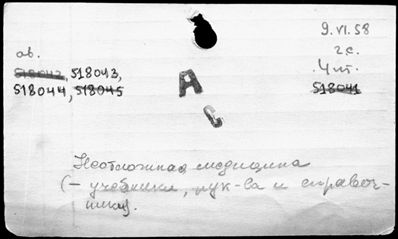 9.VI.58
ав.
г.с.
518042, 518043,
4 шт.
518044, 518045
518041
А
С
Неотложная медицина
(– учебники, рук-ва и справоч-
ники).